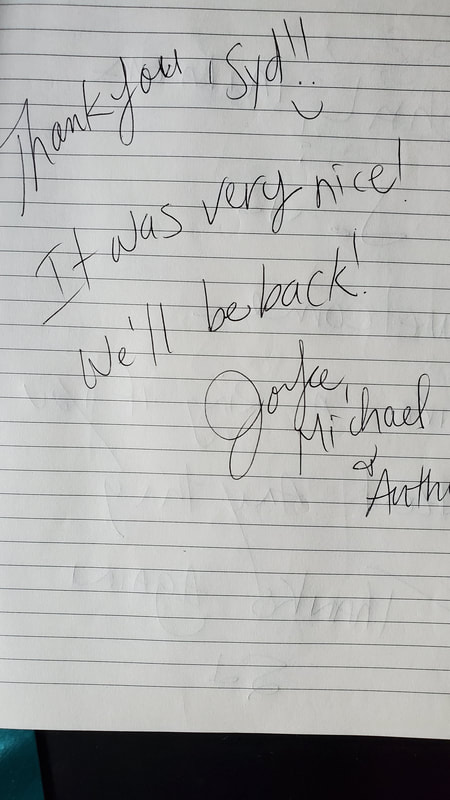 Thank you, Syd!!
It was very nice!
We'll be back!
Joyce,
Michael
&
Anth